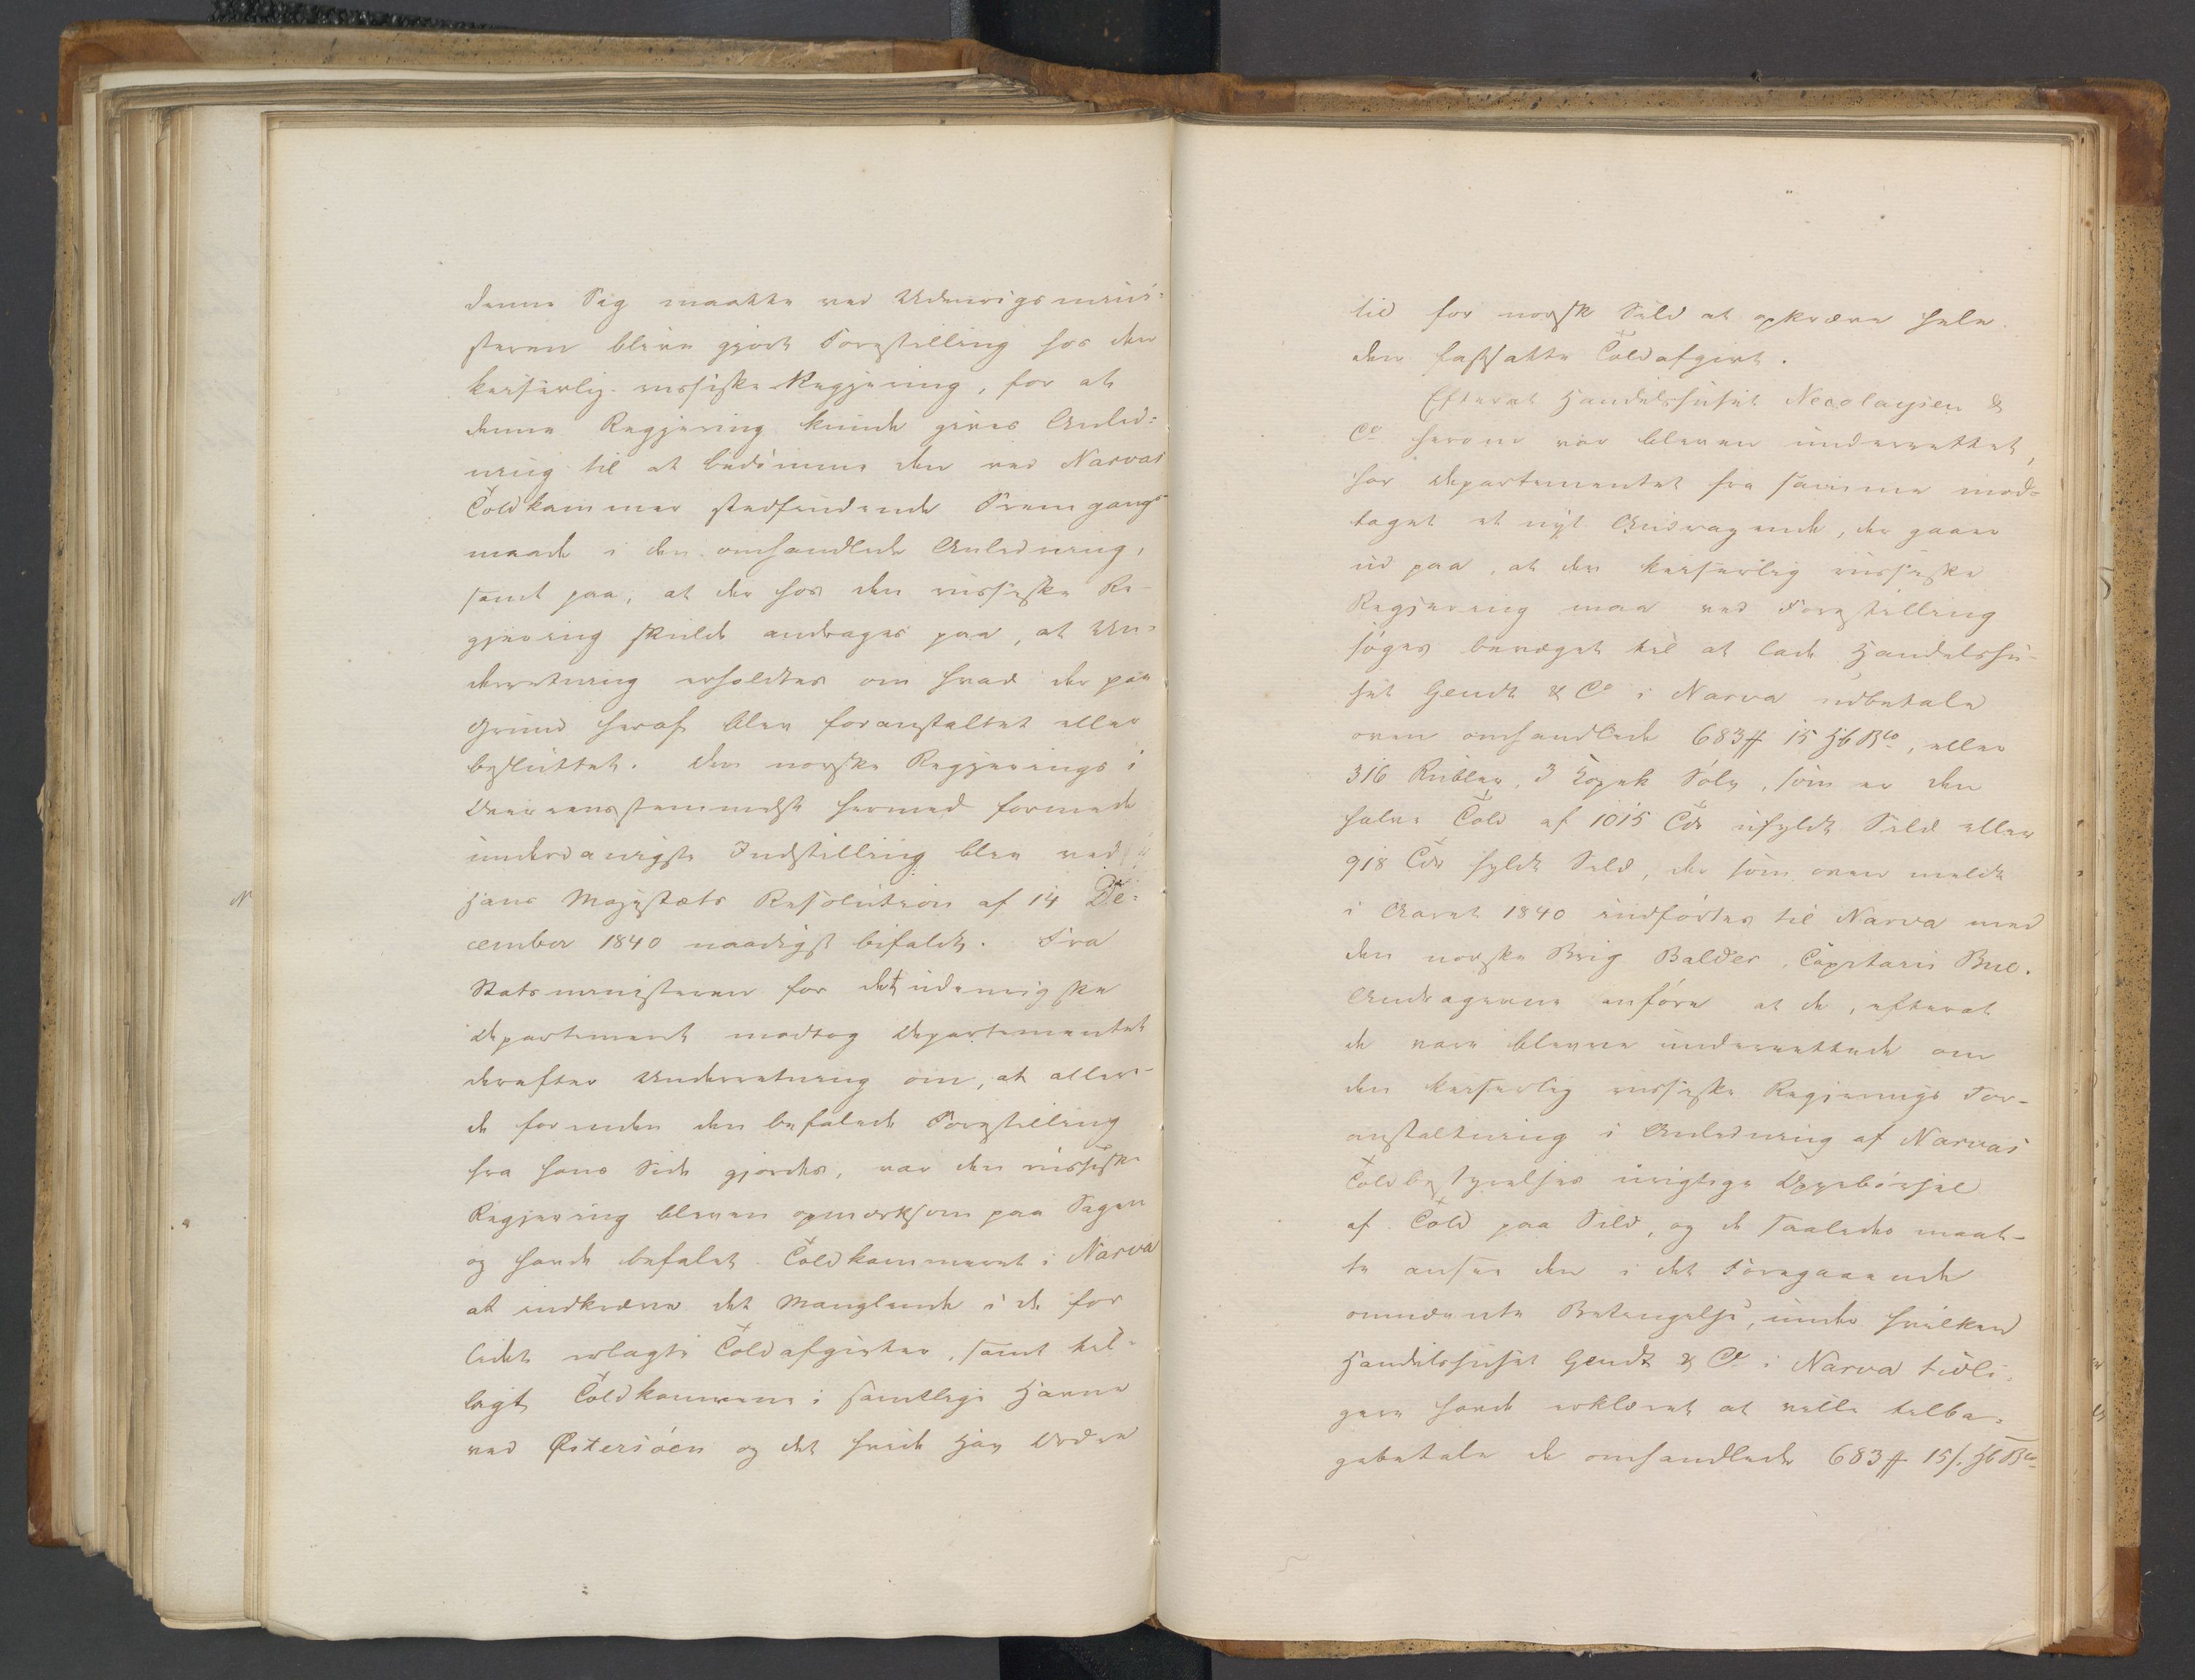 denne Sag maatte ved Udenrigsmini-
steren blive gjort Forestilling hos den
keiserlig russiske Regjering, for at
denne Regjering kunde gives Anled-
ning til at bedømme den ved Narvas
Toldkammer stedfindende Fremgangs
maade i den omhandlede Anledning,
samt paa, at der hos den russiske Re-
gjering skulde andrages paa, at Un-
derretning erholdtes om hvad der paa
Grund heraf blev foranstaltet eller
besluttet. Den norske Regjerings i
Overeensstemmelse hermed formede
underdanigste Indstilling blev ved
Hans Majestæts Resolution af 14 De-
cember 1840 naadigst bifaldt. Fra
Statsministeren for det udenrigske
Departement modtog Departementet
derefter Underretning om, at aller-
de forinden den befalede Forestilling
fra hans Side gjordes, var den russiske
Regjering bleven opmærksom paa Sagen
og havde befalet Toldkammeret i Narva
at indkræve det Manglende i de for
lidet erlagte Toldafgifter, samt paa-
lagt Toldkamrene i samtlige Havne
ved Østersøen og det hvide Hav
tid for norsk Sild at opkræve hele
den fastsatte Toldafgivt.
Efterat Handelshuset Nicolaysen &
Co herom var bleven underrettet,
har Departementet fra samme mod-
taget et nyt Andragende, der gaaer
ud paa, at den keiserlig russiske
Regjering maa ved Forestilling
søges bevæget til at lade Handelshu-
set Gendt & Co i Narva udbetale
oven omhandlede 683 ₰ 15 Hb Bco, eller
316 Rubler, 3 Kopek Sølv, som er den
halve Told af 1015 Tdr ufyldt Sild eller
918 Tdr fyldt Sild, der som oven meldt
i Aaret 1840 indførtes til Narva med
den norske Brig Balder, Capitain Bue.
Andragerne anføre at de, efterat
de vare blevne underrettede om
den keiserlig russiske Regjerings For-
anstaltning i Anledning af Narvas
Toldbestyrelses urigtige Oppebørsel
af Told paa Sild, og de saaledes maat-
te ansee den i det Foregaaende
ommeldte Betingelse, under hvilken
Handelshuset Gendt & Co i Narva tidli-
gere havde erklæret at ville tilba-
gebetale de omhandlede 683 ₰ 15 s. Hb Bco